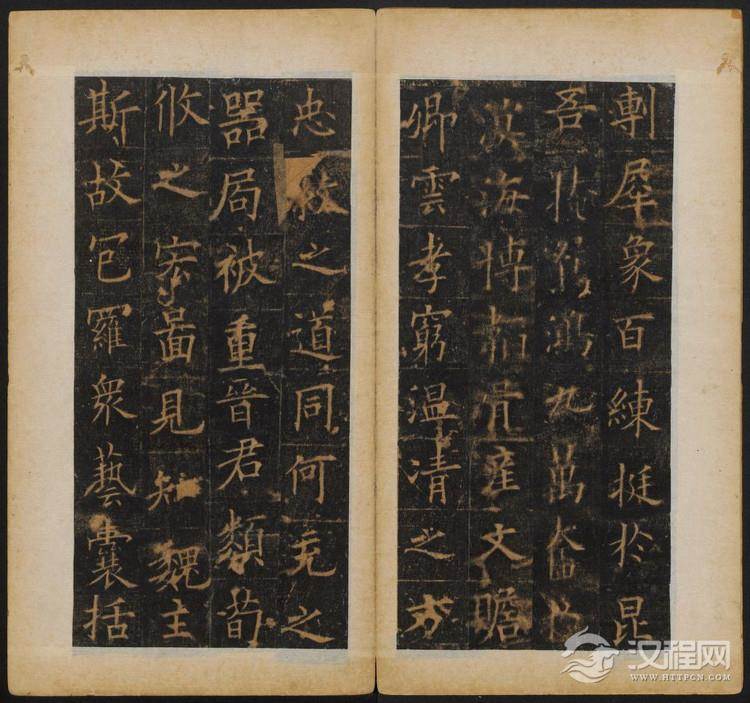 剸犀象百練挺於昆
吾鴻九萬奮於
溟海博骨產文贍
卿雲孝窮溫清之方
忠救之道同何充之
器局被重晉君類荀
攸之宏啚見知魏主
斯故包羅衆藝囊括
汉程网
WWW.HTTPCN.COM